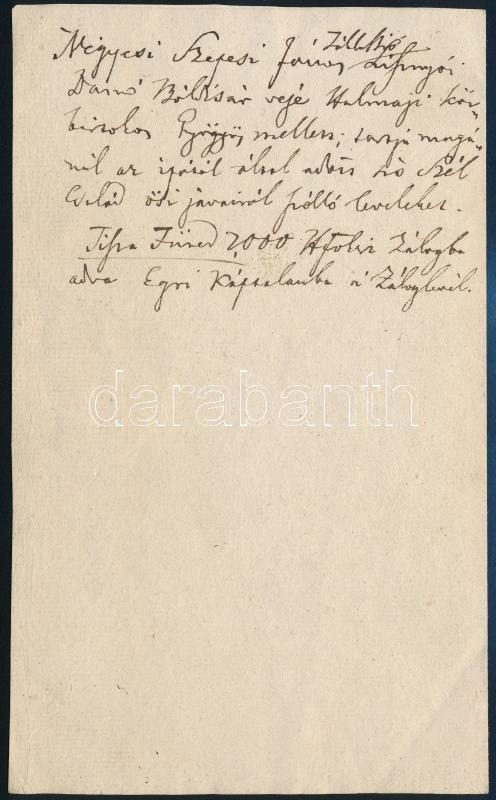 Négyesi Szepesi János
Darnó Boldisár veje Halmaji köz-
birtokos Gyöngyös mellett; tartja magá-
nál az ipától által adott Szó Szél
Család ősi javairól szólló leveleket.
Tisza Füred 2000 Hfolrér Zálogba
adva Egri Káptalanba a Záloglevél.
darabanth